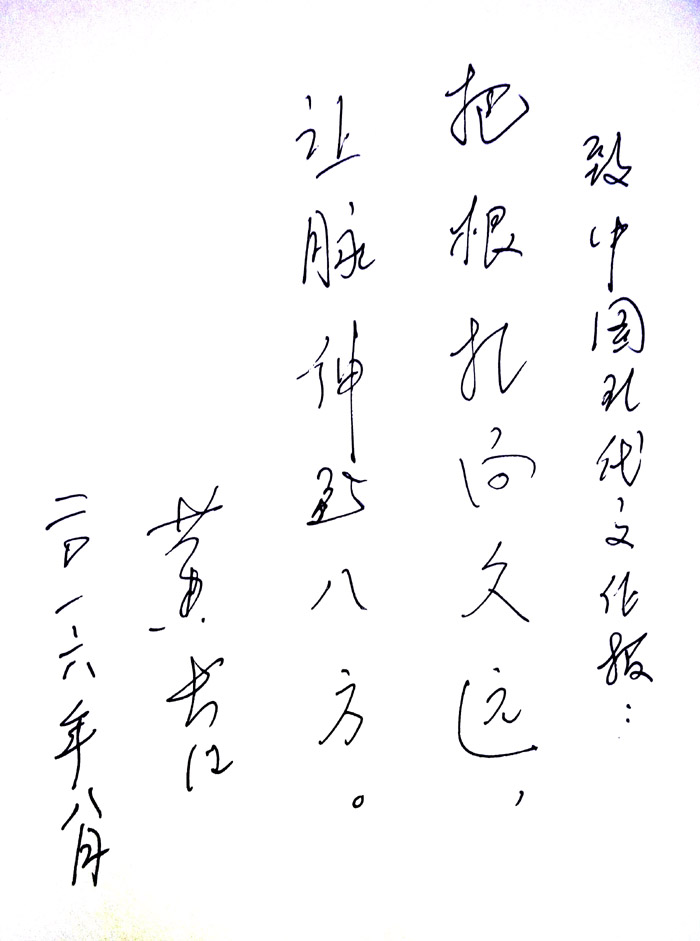 致中国现代文作报：
把根扎向久远，
让脉伸到八方。
黄长江
二〇一六年八月